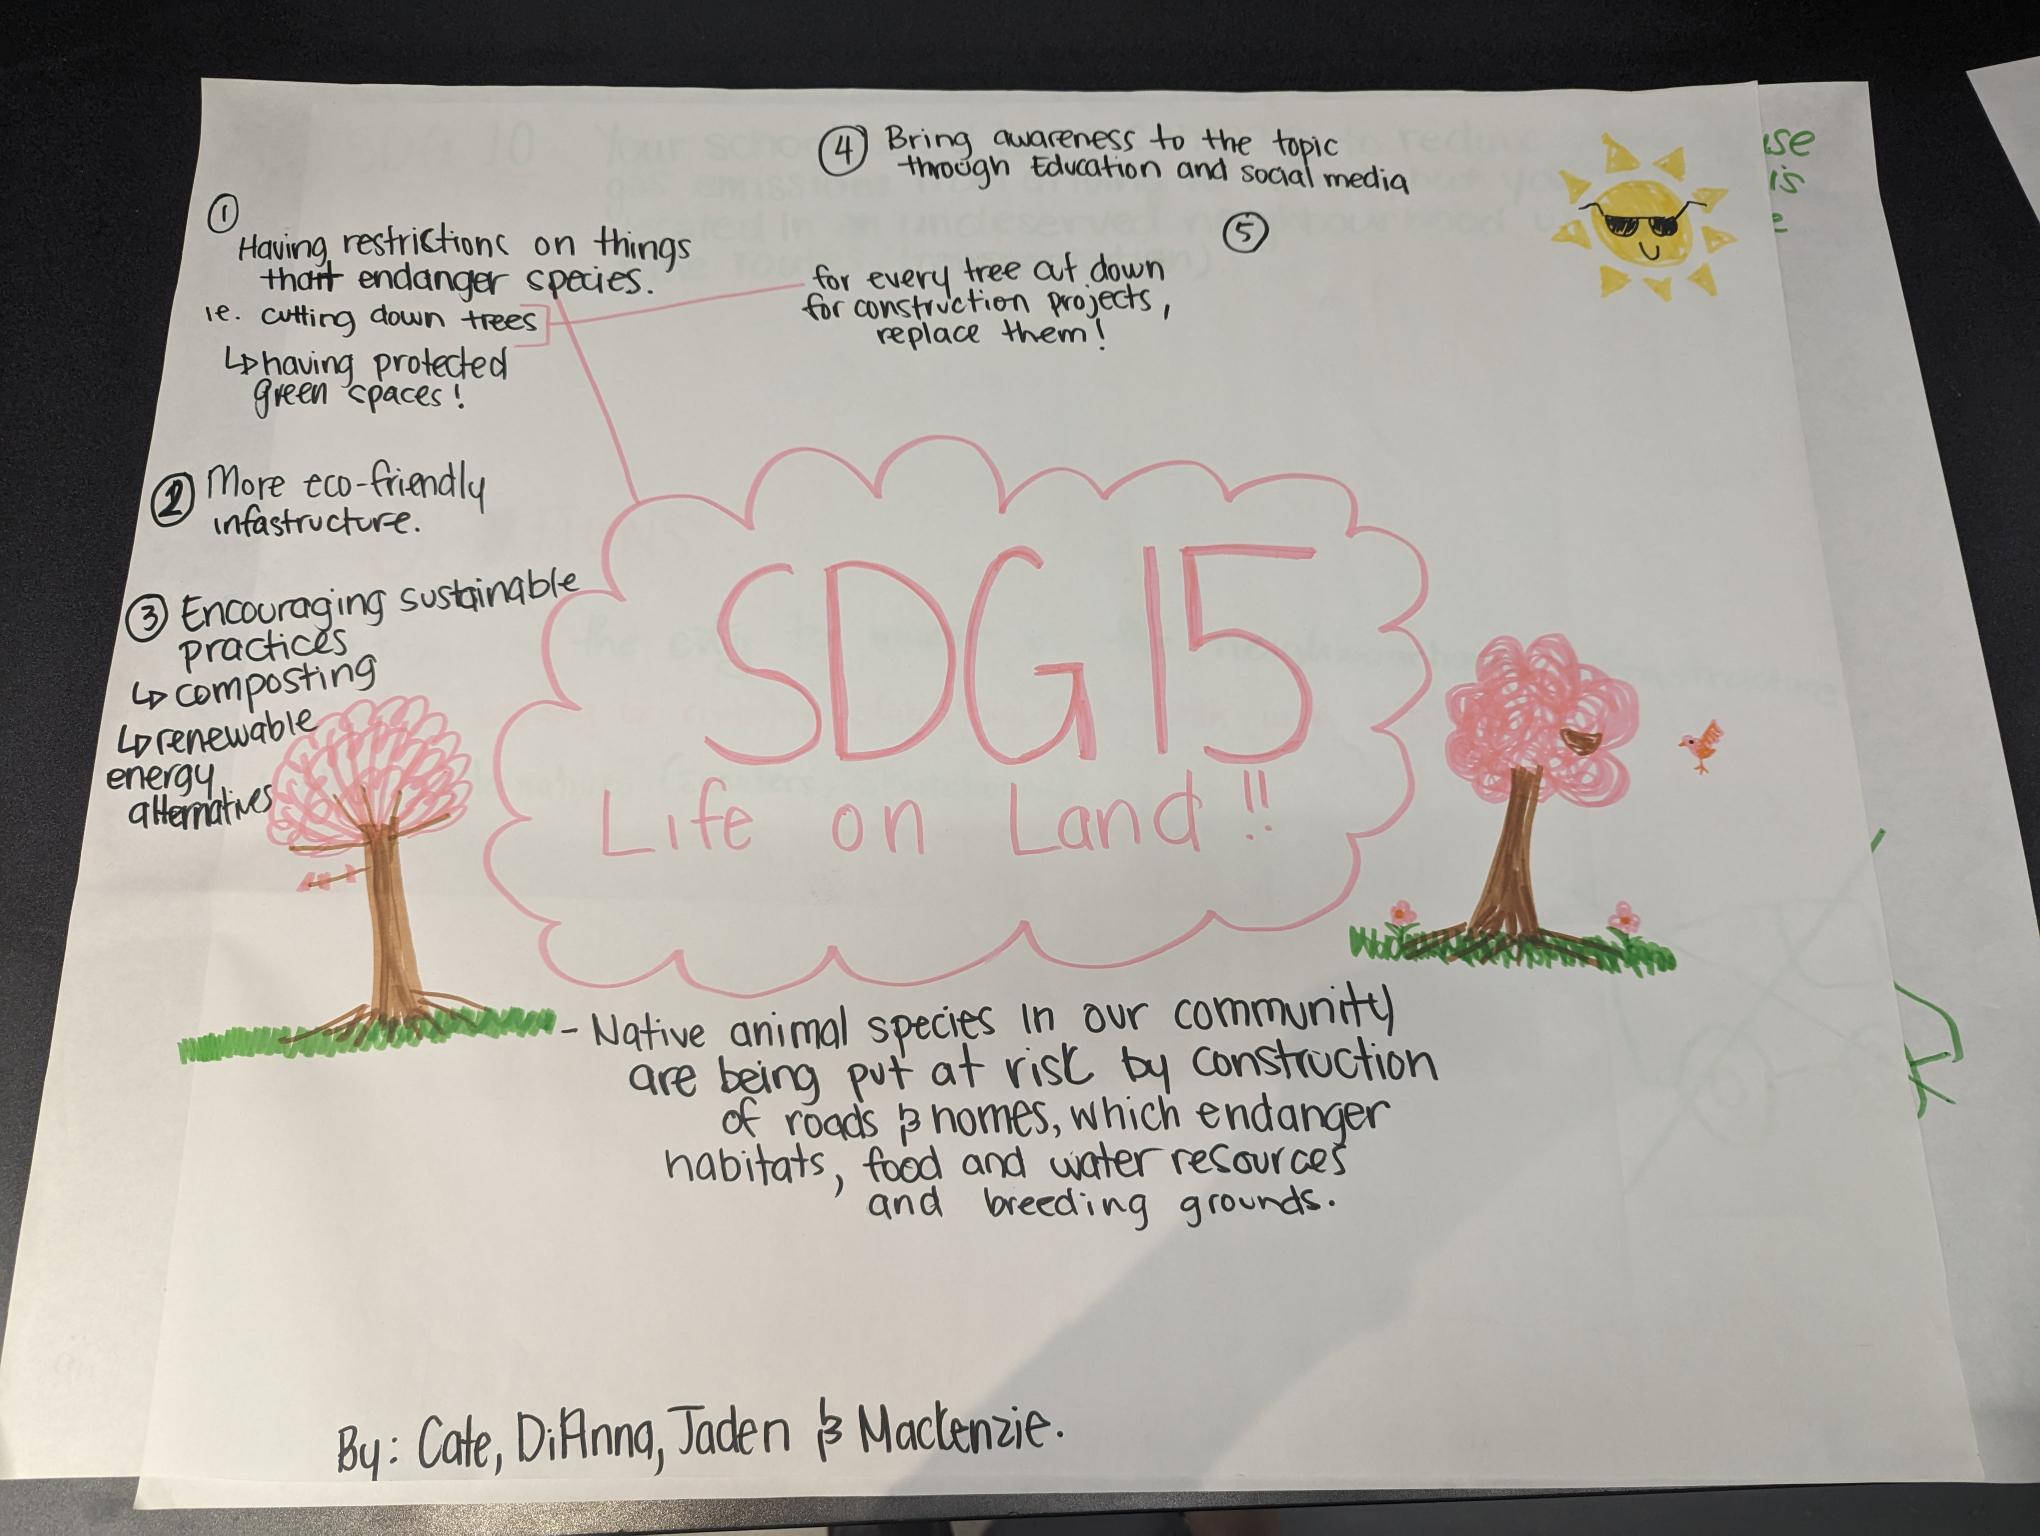 ④ Bring awareness to the topic
through Education and social media
①
Having restrictions on things
that endanger species.
ie. cutting down trees
↳ having protected
green spaces!
⑤
for every tree cut down
for construction projects,
replace them!
② More eco-friendly
infastructure.
③ Encouraging sustainable
practices
↳ composting
↳ renewable
energy
alternatives
SDG 15
Life on Land!!
- Native animal species in our community
are being put at risk by construction
of roads & homes, which endanger
habitats, food and water resources
and breeding grounds.
By: Cate, DiAnna, Jaden & Mackenzie.
use
is